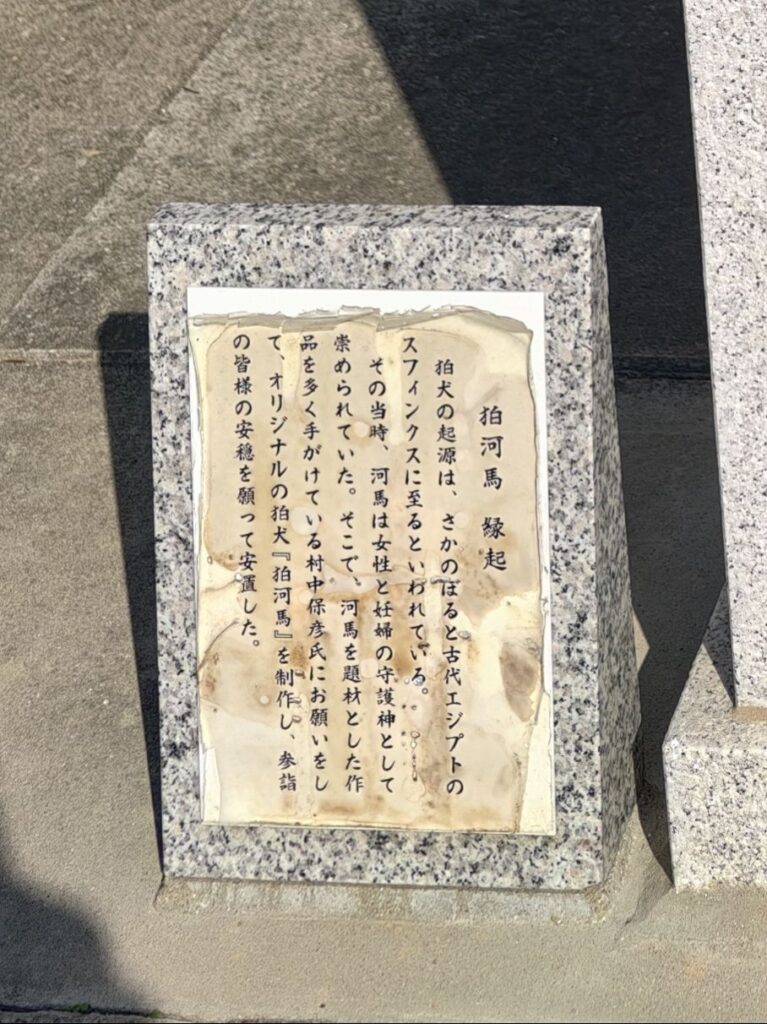 狛河馬 縁起
狛犬の起源は、さかのぼると古代エジプトの
スフィンクスに至るといわれている。
その当時、河馬は女性と妊婦の守護神として
崇められていた。そこで、河馬を題材とした作
品を多く手がけている村中保彦氏にお願いをし
て、オリジナルの狛犬『狛河馬』を制作し、参詣
の皆様の安穏を願って安置した。